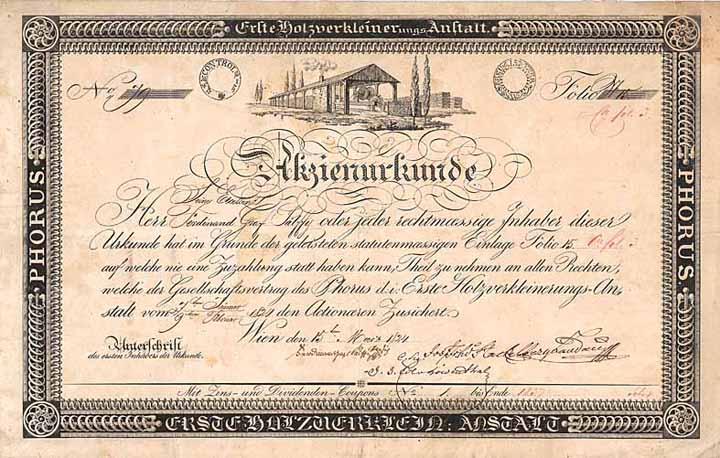 Erste Holzverkleinerungs Anstalt.
PHORUS.
PHORUS.
No
Folio
Akzienurkunde
Herr Ferdinand Graf Palffy oder jeder rechtmassige Inhaber dieser
Urkunde hat im Grunde der geleisteten statutenmassigen Einlage Folio 15
auf welche nie eine Zuzahlung statt haben kann, Theil zu nehmen an allen Rechten,
welche der Gesellschaftsvertrag des Phorus d.i. Erste Holzverkleinerungs-An-
stalt vom 1824 den Actionären Zusichert.
Wien den 15ten März 1824
Unterschrift
des ersten Inhabers der Urkunde.
Mit Zins- und Dividenden-Coupons No 1 bis Ende
ERSTE HOLZVERKLEIN: ANSTALT